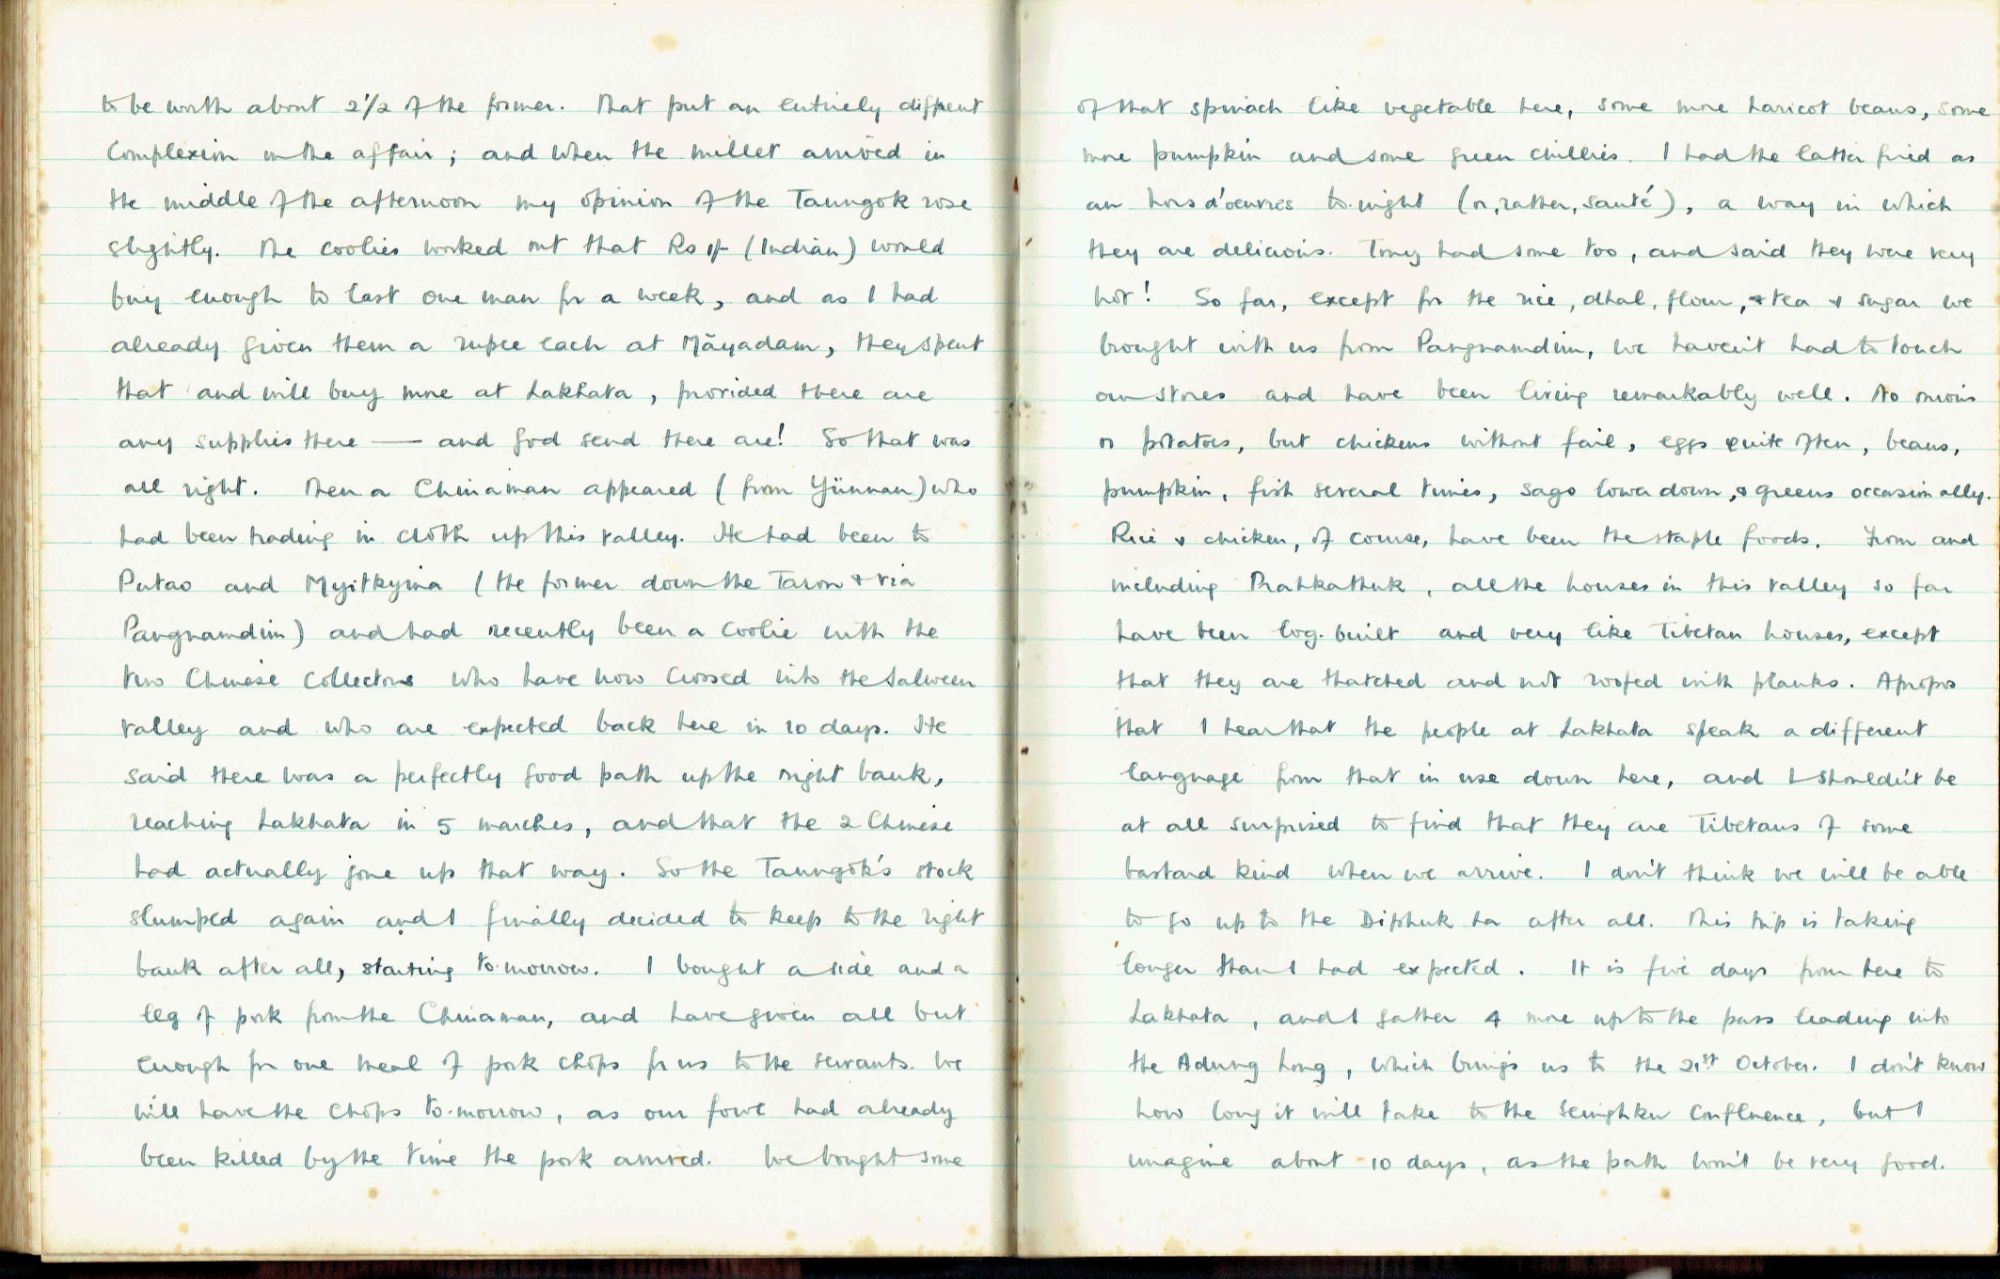 to be worth about 2 1/2 of the former. That put an entirely different
complexion on the affair; and when the millet arrived in
the middle of the afternoon my opinion of the Taungok rose
slightly. The coolies worked out that Rs 1/- (Indian) would
buy enough to last one man for a week, and as I had
already given them a rupee each at Māyadam, they spent
that and will buy more at Lakhata, provided there are
any supplies there — and God send there are! So that was
all right. Then a Chinaman appeared (from Yünnan) who
had been trading in cloth up this valley. He had been to
Putao and Myitkyina (the former down the Taron & via
Pangnamdim) and had recently been a coolie with the
two Chinese collectors who have now crossed into the Salween
valley and who are expected back here in 10 days. He
said there was a perfectly good path up the right bank,
reaching Lakhata in 5 marches, and that the 2 Chinese
had actually gone up that way. So the Taungok's stock
slumped again and I finally decided to keep to the right
bank after all, starting to-morrow. I bought a side and a
leg of pork from the Chinaman, and have given all but
enough for one meal of pork chops for us to the servants. We
will have the chops to-morrow, as our fowl had already
been killed by the time the pork arrived. We bought some
of that spinach like vegetable here, some more haricot beans, some
more pumpkin and some green chillies. I had the latter fried as
an hors d'oeuvres to-night (or, rather, sauté), a way in which
they are delicious. Tony had some too, and said they were very
hot! So far, except for the rice, dhal, flour, & tea & sugar we
brought with us from Pangnamdim, we haven't had to touch
our stores and have been living remarkably well. No onions
or potatoes, but chickens without fail, eggs quite often, beans,
pumpkin, fish several times, sago lower down, & greens occasionally.
Rice & chicken, of course, have been the staple foods. From and
including Prahkathuk, all the houses in this valley so far
have been log-built and very like Tibetan houses, except
that they are thatched and not roofed with planks. Apropos
that I hear that the people at Lakhata speak a different
language from that in use down here, and I shouldn't be
at all surprised to find that they are Tibetans of some
bastard kind when we arrive. I don't think we will be able
to go up to the Diphuk La after all. This trip is taking
longer than I had expected. It is five days from here to
Lakhata, and I gather 4 more up to the pass leading into
the Adung Long, which brings us to the 21st October. I don't know
how long it will take to the Seinghku confluence, but I
imagine about 10 days, as the path won't be very good.